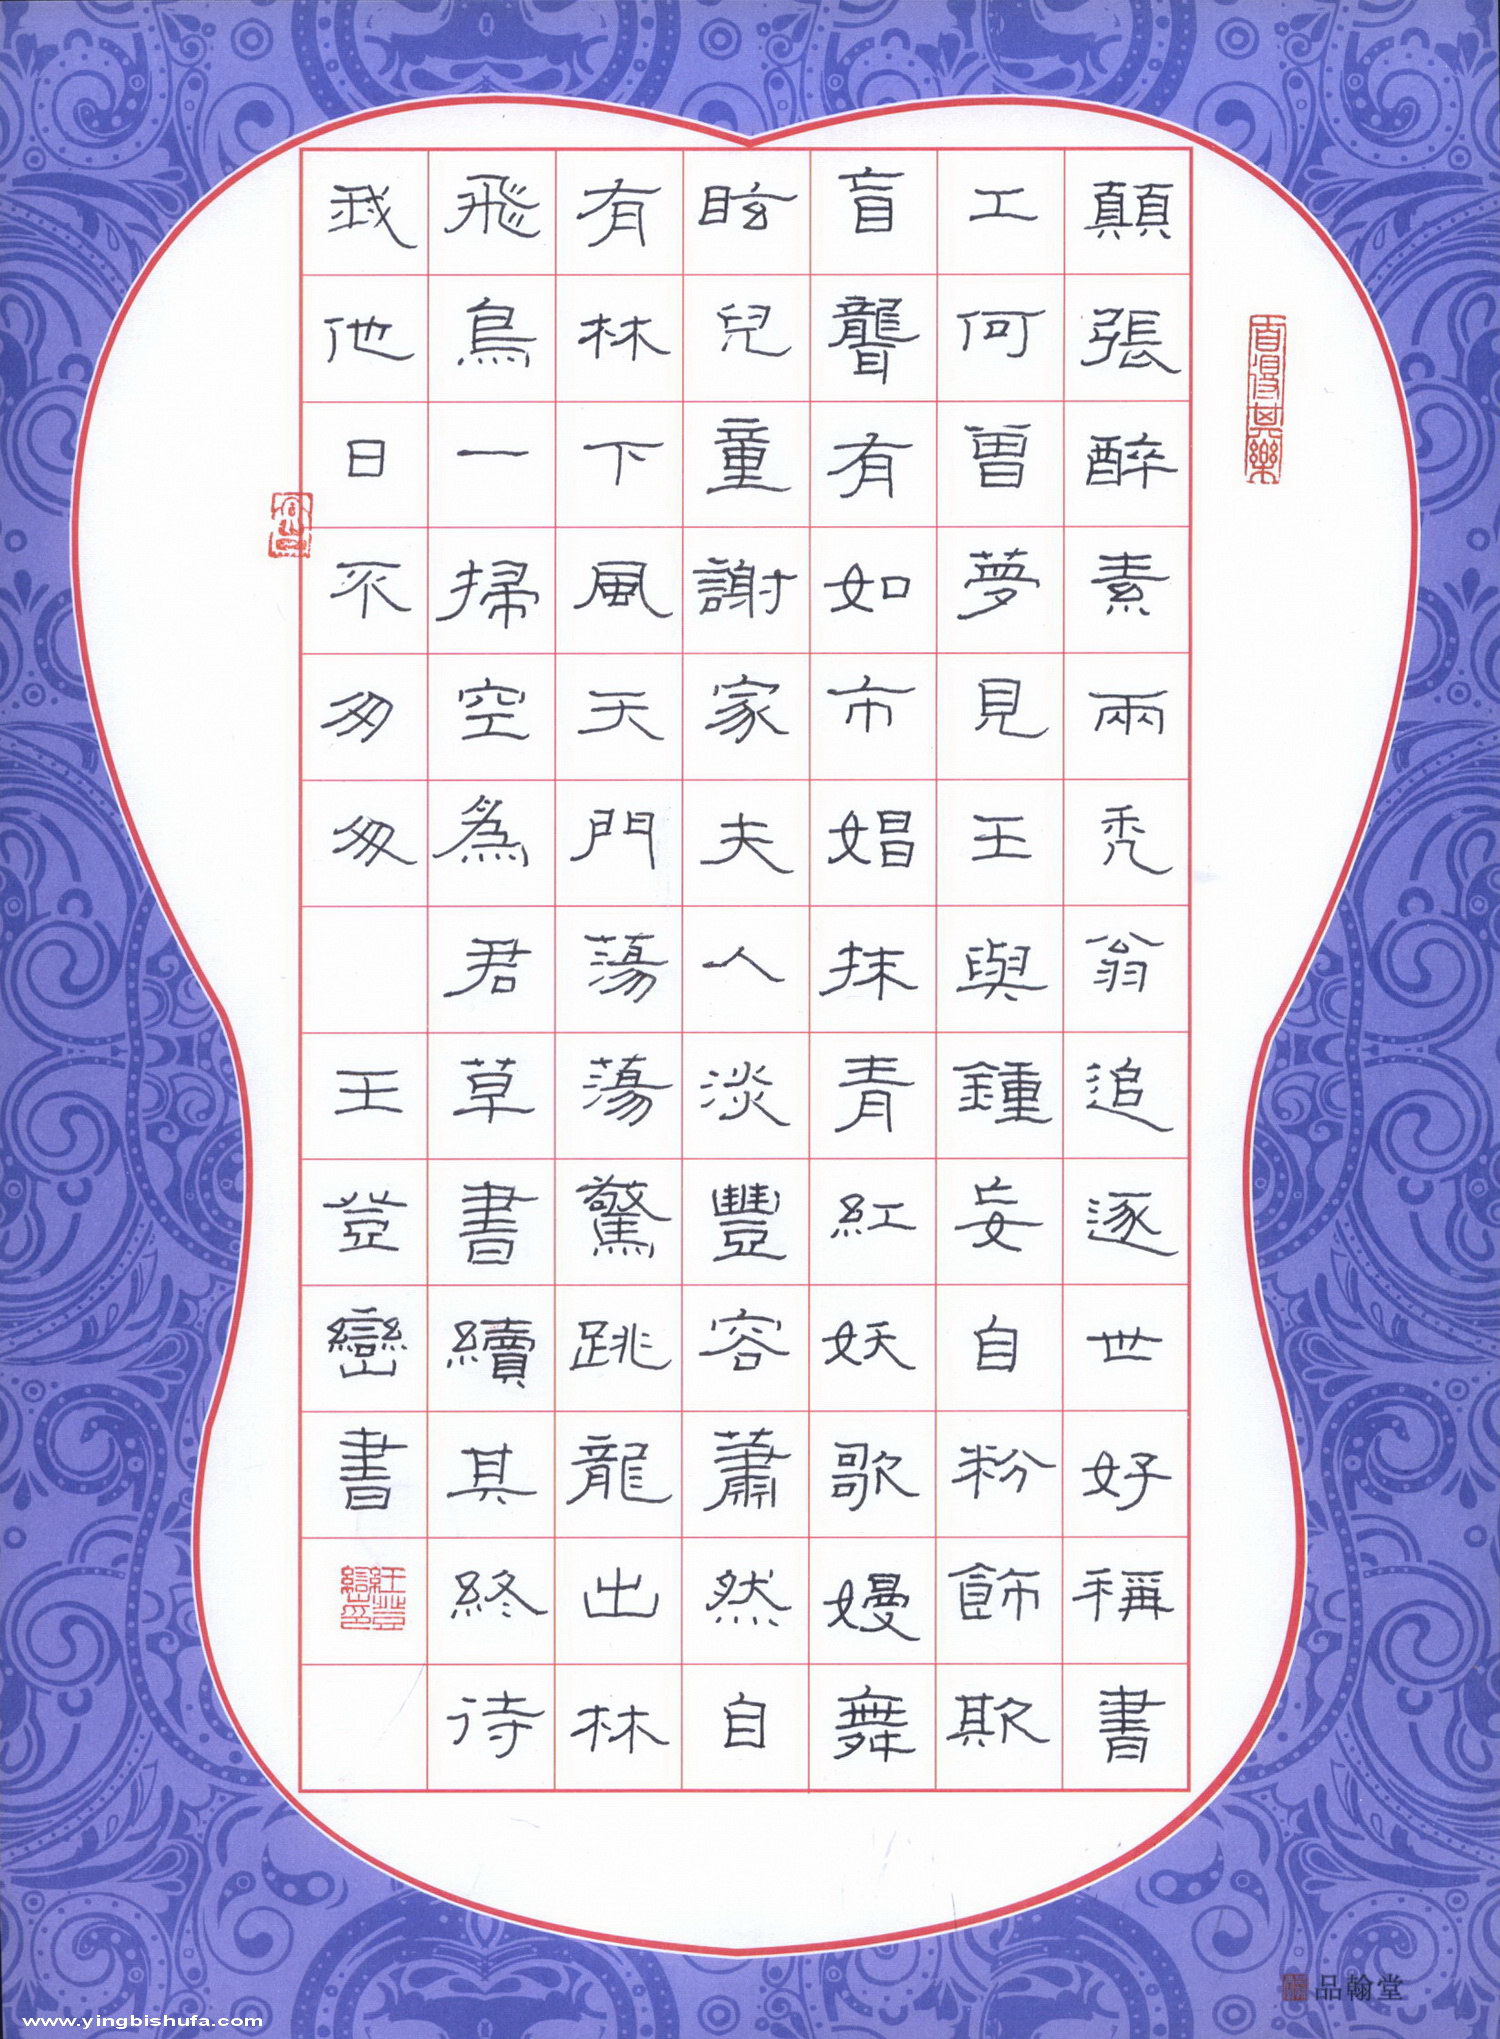 顛張醉素兩禿翁追逐世好稱書
工何曾夢見王與鍾妄自粉飾欺
盲聾有如市娼抹青紅妖歌嫚舞
眩兒童謝家夫人淡豐容蕭然自
有林下風天門蕩蕩驚跳龍出林
飛鳥一掃空為君草書續其終待
我他日不匆匆 王登巒書
品翰堂
www.yingbishufa.com